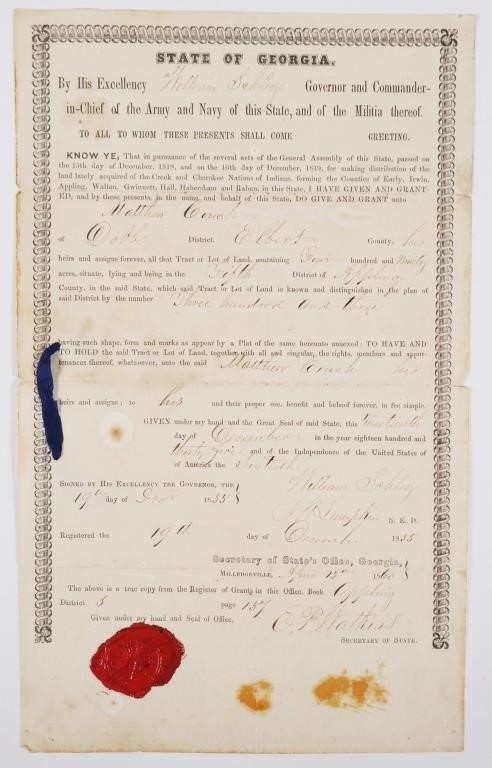 STATE OF GEORGIA.
By His Excellency William Schley Governor and Commander-
in-Chief of the Army and Navy of this State, and of the Militia thereof.
TO ALL TO WHOM THESE PRESENTS SHALL COME GREETING.
KNOW YE, That in pursuance of the several acts of the General Assembly of this State, passed on
the 15th day of December, 1818, and on the 16th day of December, 1819, for making distribution of the
land lately acquired of the Creek and Cherokee Nations of Indians, forming the Counties of Early, Irwin,
Appling, Walton, Gwinnett, Hall, Habersham and Rabun, in this State, I HAVE GIVEN AND GRANT-
ED, and by these presents, in the name, and behalf of this State, DO GIVE AND GRANT unto
Matthew Couch
of Dobbs District, Elbert County, his
heirs and assigns forever, all that Tract or Lot of Land, containing Four hundred and Ninety
acres, situate, lying and being in the Fifth District of Appling
County, in the said State, which said Tract or Lot of Land is known and distinguished in the plan of
said District by the number Three hundred and three
having such shape, form and marks as appear by a Plat of the same hereunto annexed: TO HAVE AND
TO HOLD the said Tract or Lot of Land, together with all and singular, the rights, members and appur-
tenances thereof, whatsoever, unto the said Matthew Couch his
heirs and assigns; to his and their proper use, benefit and behoof forever, in fee simple.
GIVEN under my hand and the Great Seal of said State, this
day of December in the year eighteen hundred and
thirty five and of the Independence of the United States of
of America the Sixtieth
William Schley
SIGNED BY HIS EXCELLENCY THE GOVERNOR, THE
19th day of Decr 1835
Lumpkin S. E. D.
Registered the 19th day of December 1835
Secretary of State's Office, Georgia,
MILLEDGEVILLE, April 1860
The above is a true copy from the Register of Grants in this Office, Book Appling
District 5 page 137
Given under my hand and Seal of Office.
E. P. Watkins
SECRETARY OF STATE.